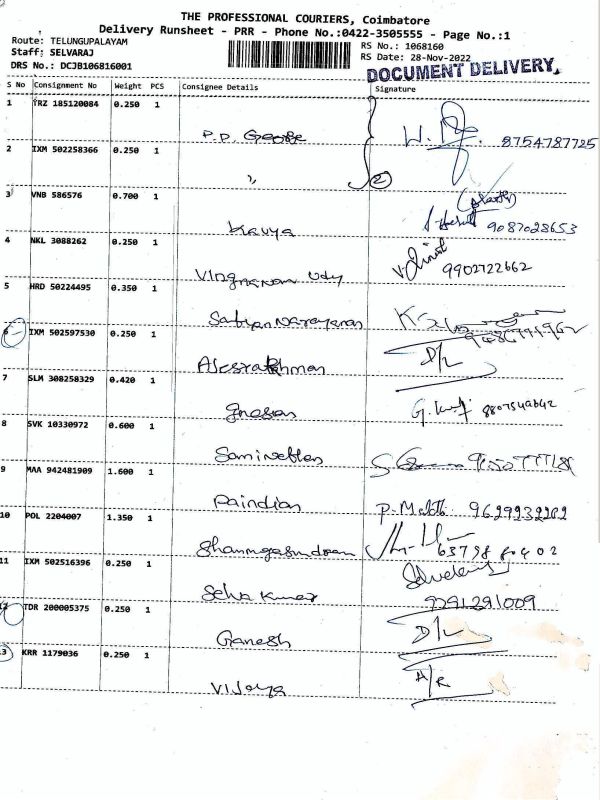 THE PROFESSIONAL COURIERS, Coimbatore
Delivery Runsheet - PRR - Phone No.:0422-3505555 - Page No.:1
Route: TELUNGUPALAYAM
RS No.: 1068160
Staff: SELVARAJ
RS Date: 28-Nov-2022
DRS No.: DCJB106816001
DOCUMENT DELIVERY
S No Consignment No Weight PCS Consignee Details Signature
1 TRZ 185120084 0.250 1
P.P. George 8754787725
2 IXM 502258366 0.250 1
" 2
3 VNB 586576 0.700 1
Kavya 9087028653
4 NKL 3088262 0.250 1
9902722662
5 HRD 50224495 0.350 1
Satyan Narayanan
6 IXM 502597530 0.250 1
D/L
7 SLM 308258329 0.420 1
8 SVK 10330972 0.600 1
9 MAA 942481909 1.600 1
Paindian 9629232202
10 POL 2204007 1.350 1
11 IXM 502516396 0.250 1
Selva Kumar
12 TDR 200005375 0.250 1
Ganesh D/L
13 KRR 1179036 0.250 1
Vijaya A/R